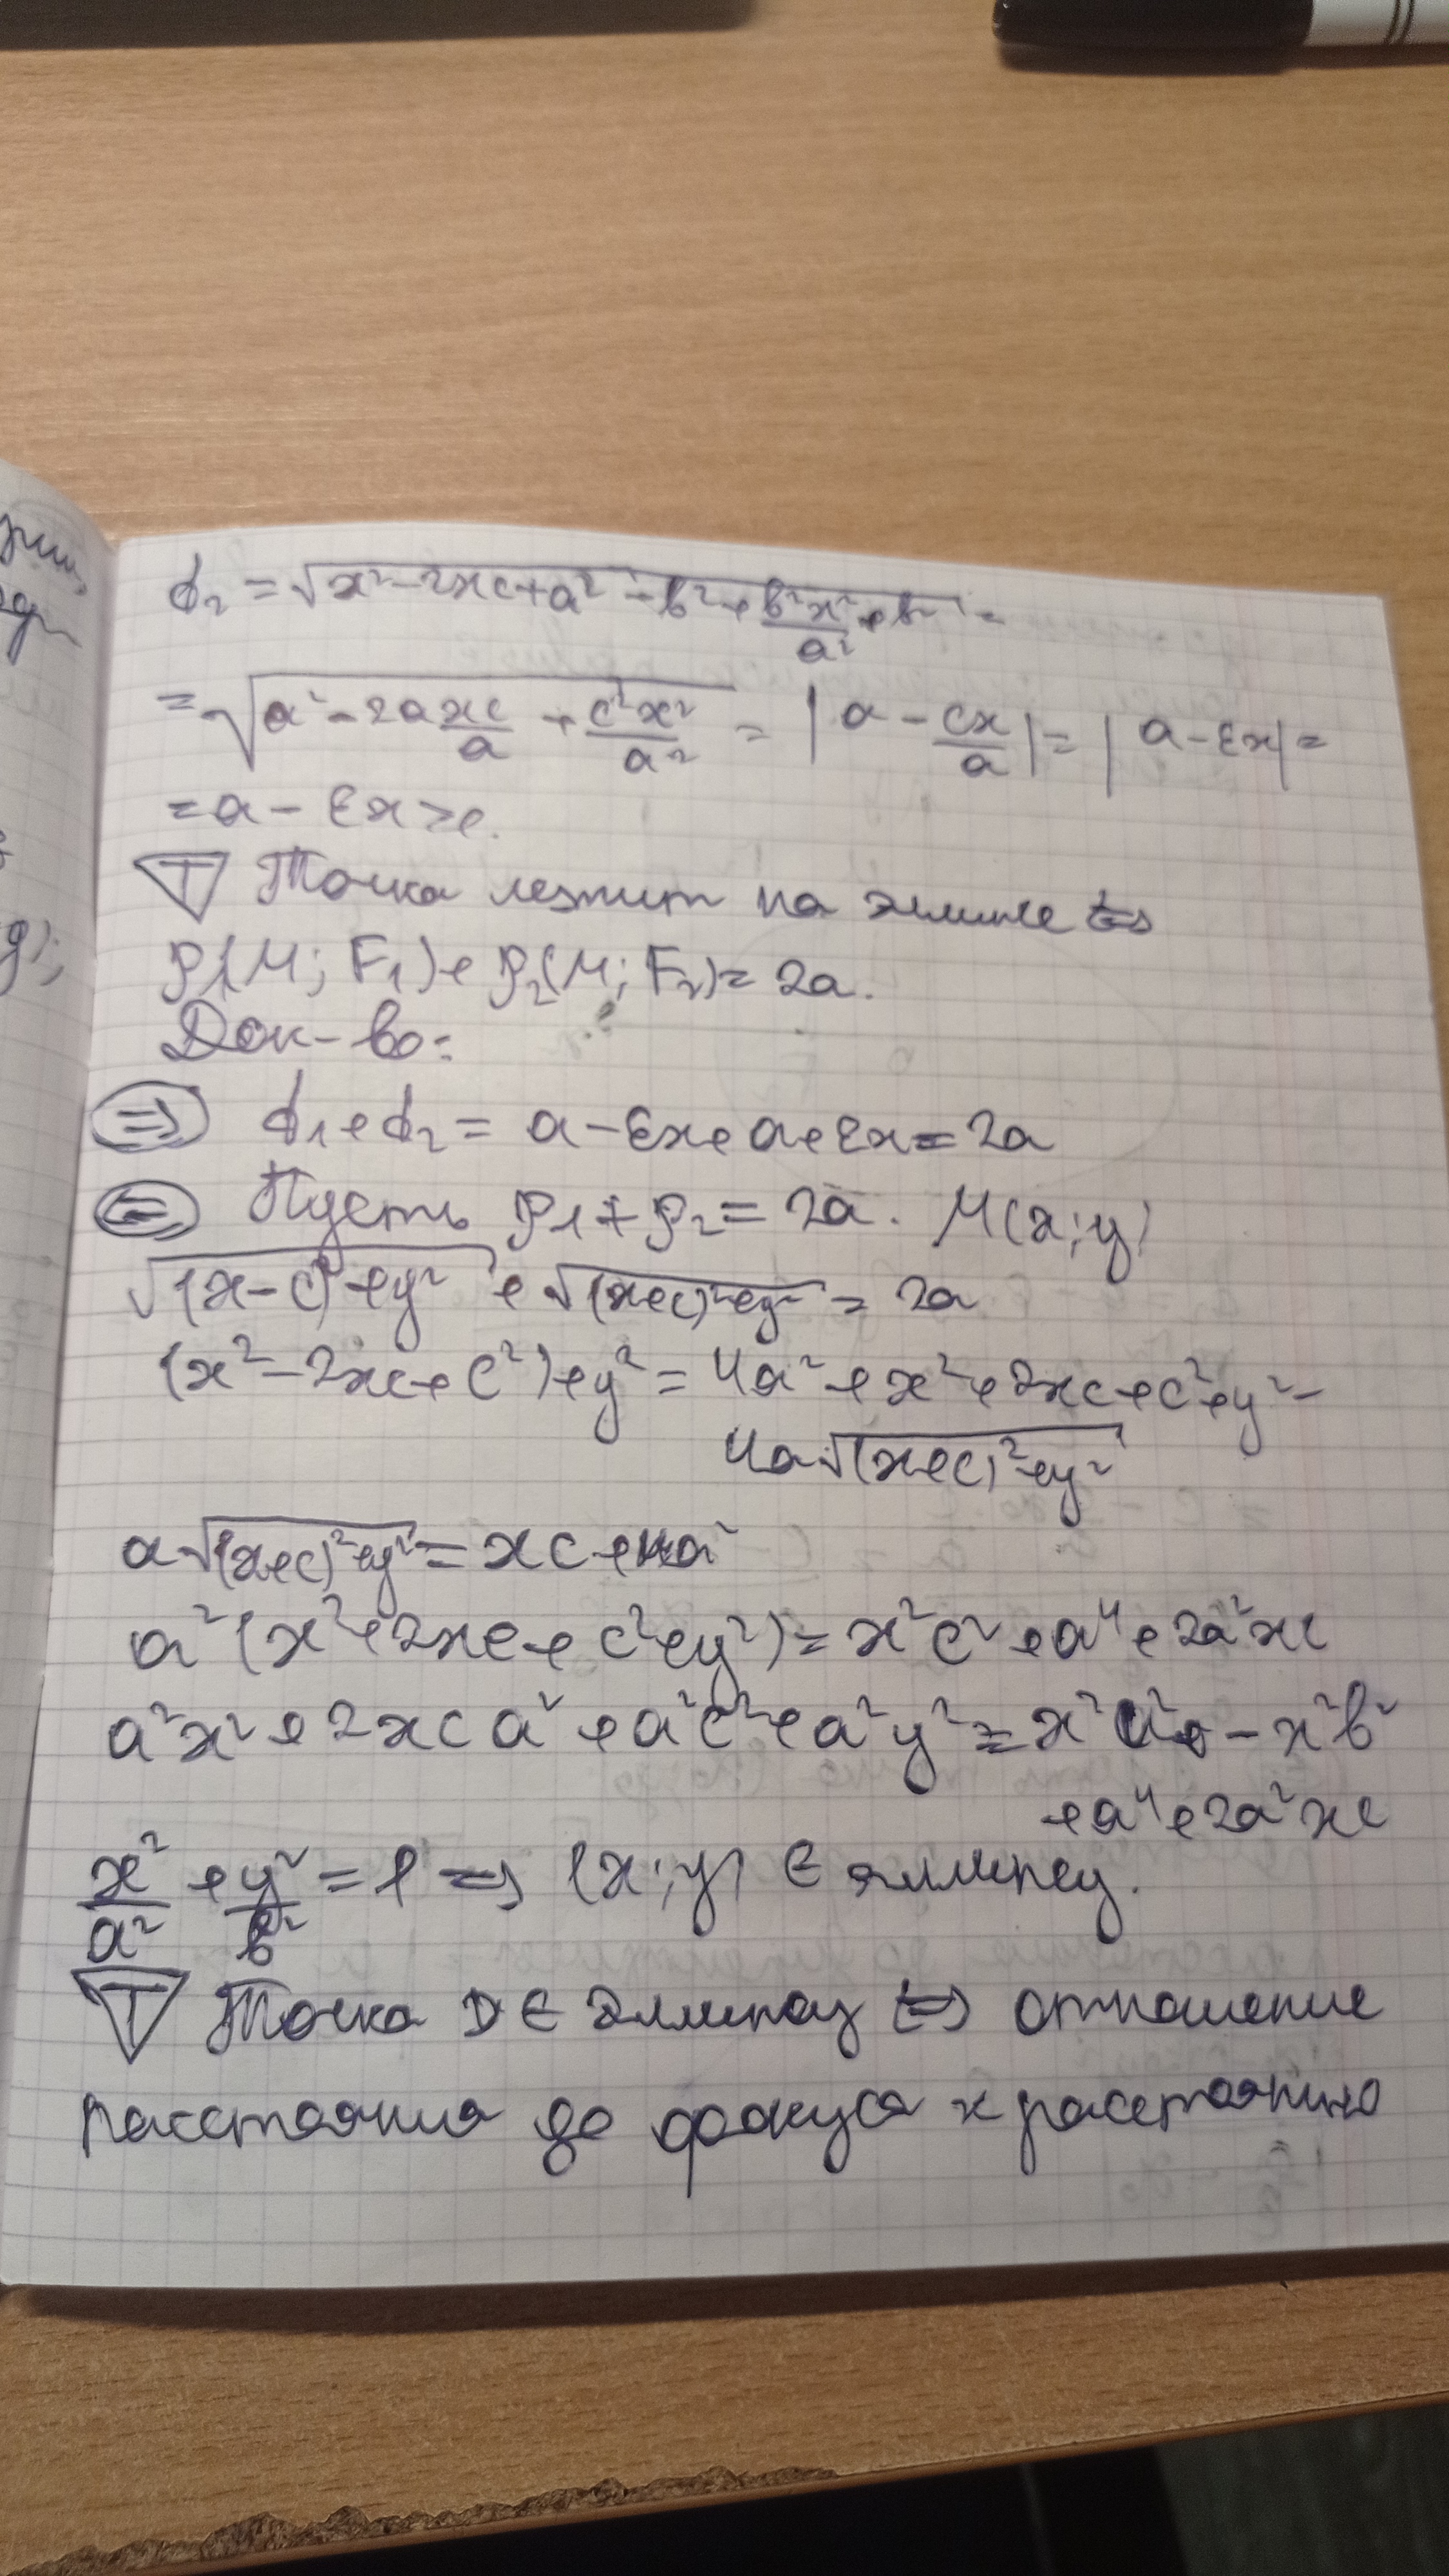 d₂ = √(x² - 2xc + a² - b² + b²x²/a² + b²) =
= √(a² - 2a xc/a + c²x²/a²) = |a - cx/a| = |a - εx| =
= a - εx
T Точка лежит на эллипсе ⇔
ρ₁(M; F₁) + ρ₂(M; F₂) = 2a.
Док-во:
⇒ d₁ + d₂ = a - εx + a + εx = 2a
⇐ Пусть ρ₁ + ρ₂ = 2a. M(x; y)
√((x - c)² + y²) + √((x + c)² + y²) = 2a
(x² - 2xc + c²) + y² = 4a² + x² + 2xc + c² + y² -
4a√((x + c)² + y²)
a√((x + c)² + y²) = xc + a²
a²(x² + 2xc + c² + y²) = x²c² + a⁴ + 2a²xc
a²x² + 2xca² + a²c² + a²y² = x²a² - x²b²
+ a⁴ + 2a²xc
x²/a² + y²/b² = 1 ⇒ (x; y) ∈ эллипсу.
T Точка D ∈ эллипсу ⇔ отношение
расстояния до фокуса к расстоянию